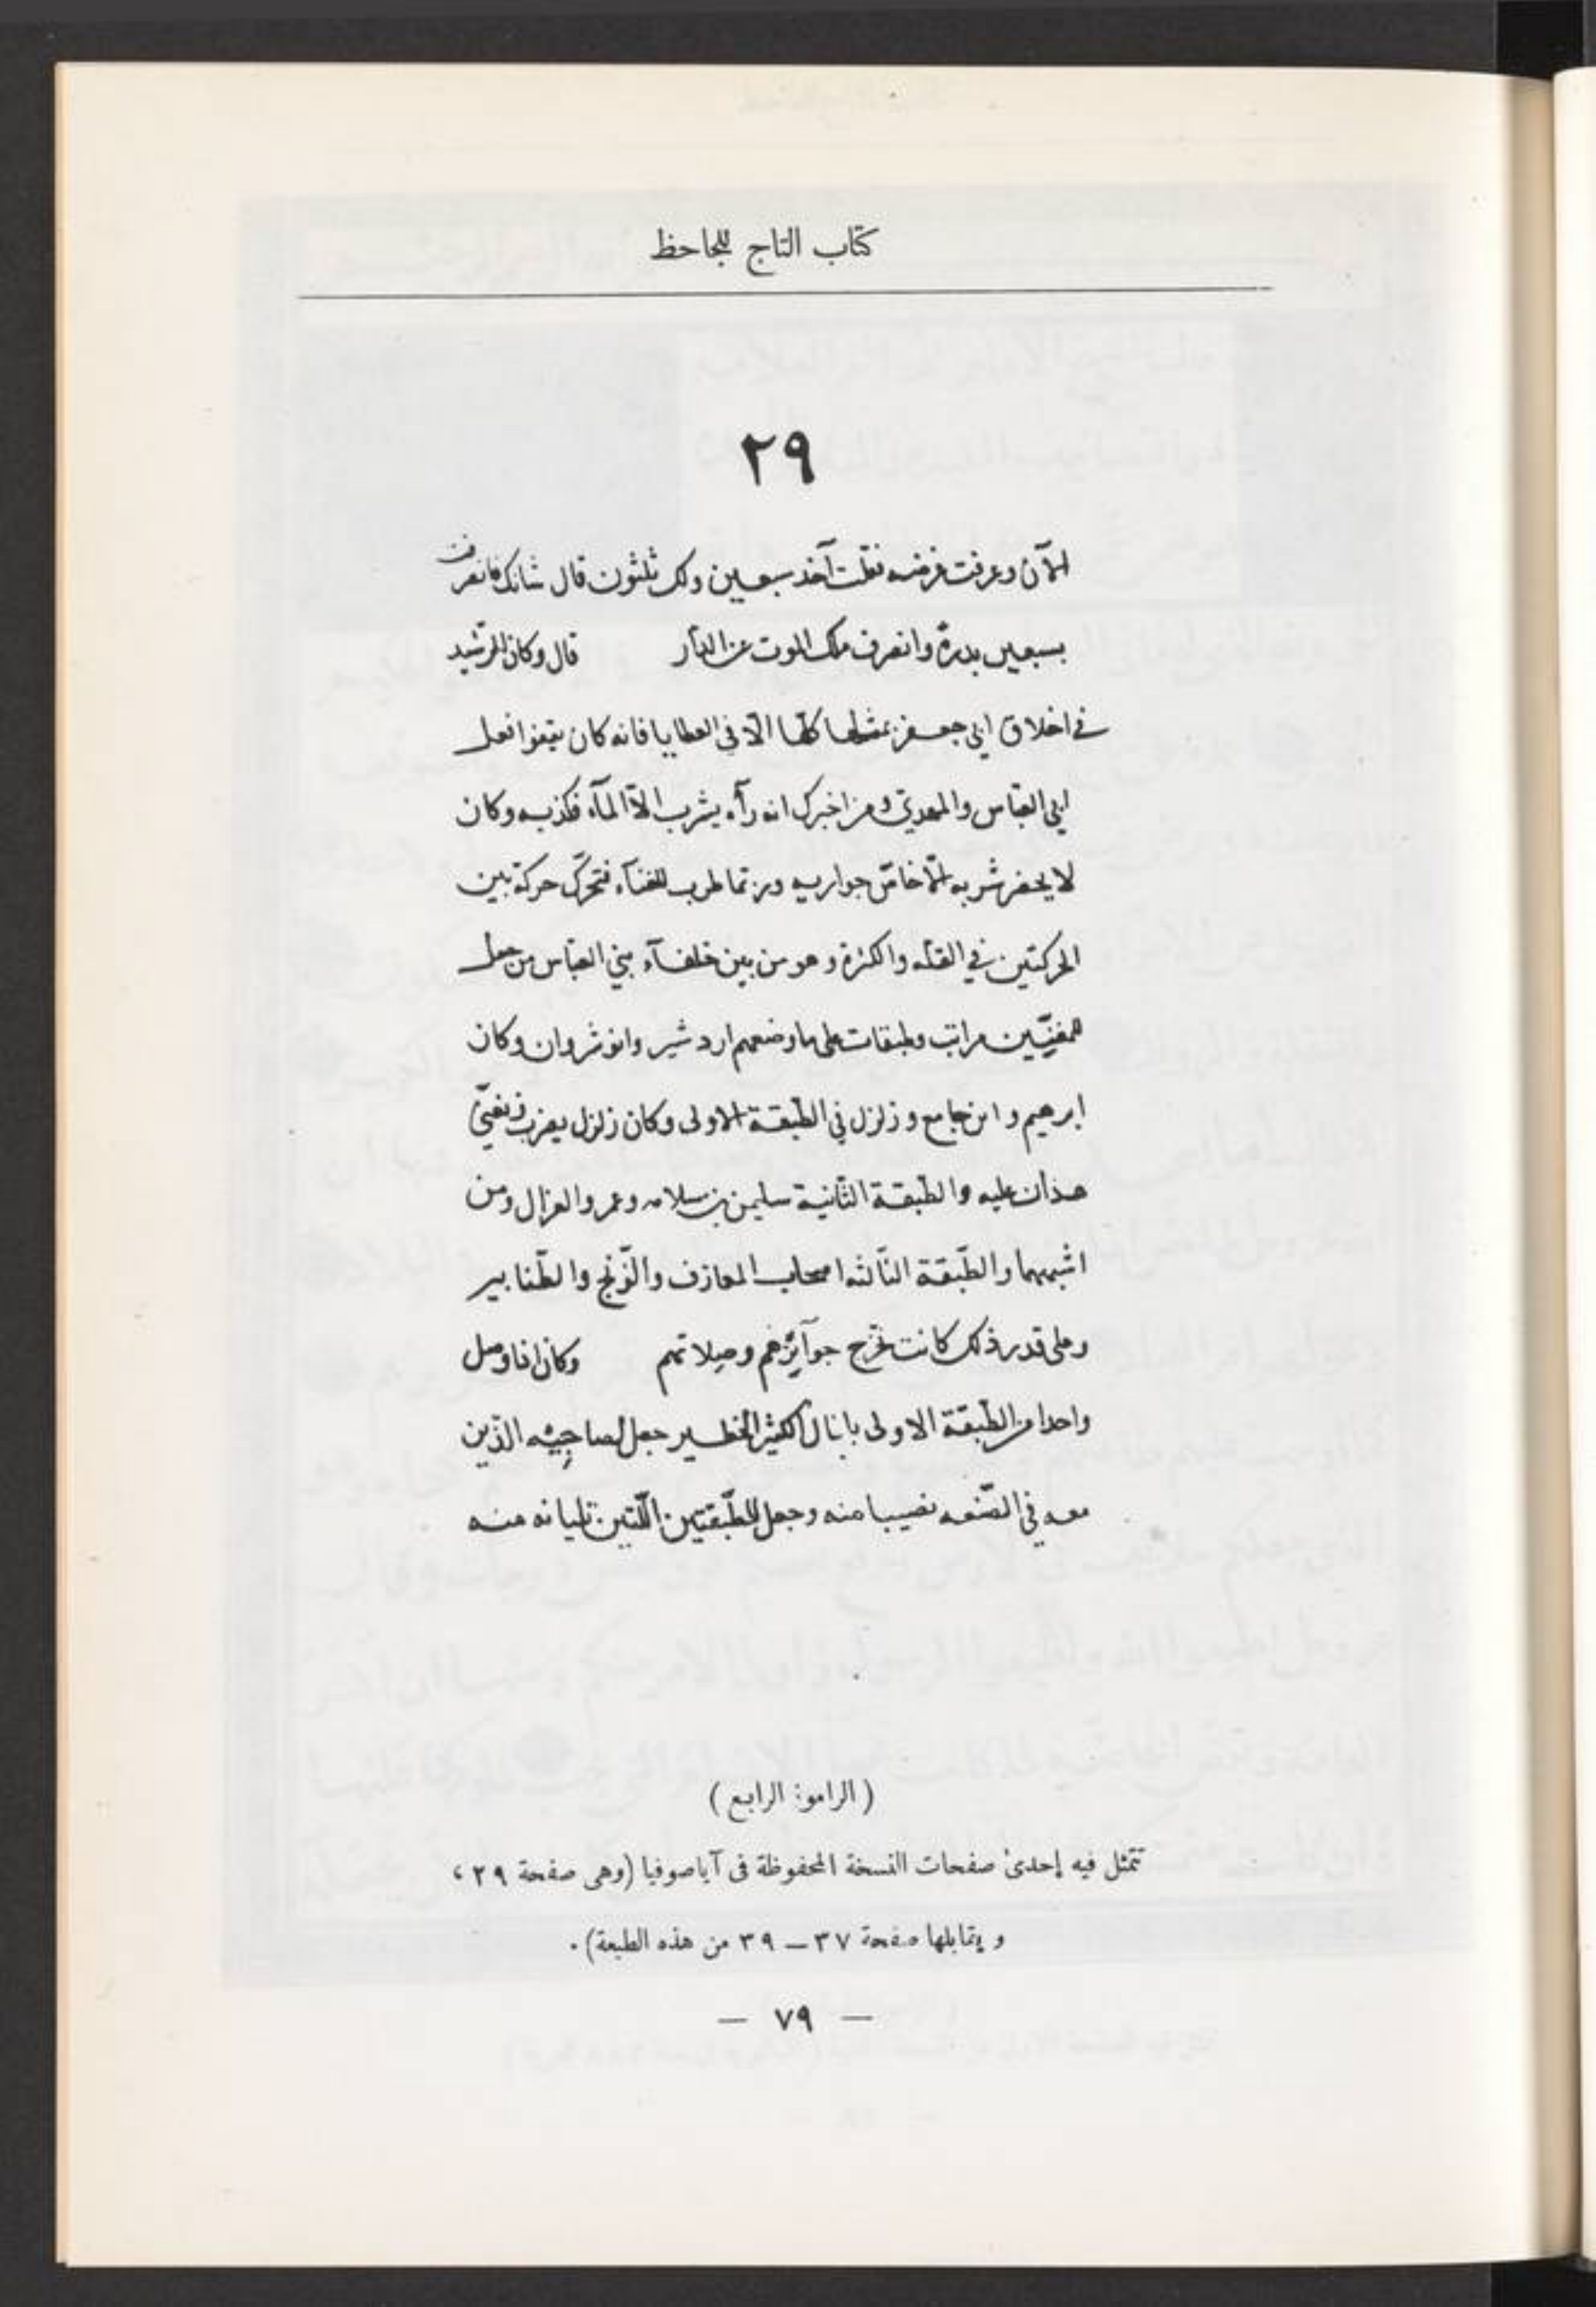 كتاب التاج للجاحظ
٢٩
الآن وعرفت غرضه فقلت آخذ سبعين ولك ثلثون قال شانك فانصرفت
بسبعين بدرة وانصرف ملك الموت عن الدار قال وكان الرشيد
في اخلاق ابي جعفر يمتثلها كلها الّا في العطايا فانه كان يقفوا فعل
ابي العبّاس والمهديّ ومن اخبرك انه رآه يشرب الّا المآء فكذبه وكان
لا يحضر شربه الّا خاصّ جواريه وربّما طرب للغنآء فتحرّك حركة بين
الحركتين في القلّه والكثرة وهو من بين خلفآء بني العبّاس من جعل
للمغنّيين مراتب وطبقات على ما وضعهم اردشير وانوشروان وكان
ابرهيم وابن جامع وزلزل في الطّبقة الاولى وكان زلزل يضرب ويغنّي
هذان عليه والطّبقة الثّانية سليمن بن سلامه وعمرو الغزال ومن
اشبههما والطّبقة الثّالثه اصحاب المعازف والوّنج والطّنابير
وعلى قدر ذلك كانت تخرج جوآئزهم وصلاتهم وكان اذا وصل
واحدا من الطّبقة الاولى بالمال الكثير الخطير جعل لصاحبيه الذّين
معه في الصّنعه نصيبا منه وجعل للطّبقتين اللّتين تليانه منه
( الراموز الرابع )
تتمثل فيه إحدىٰ صفحات النسخة المحفوظة فى آياصوفيا (وهى صفحة ٢٩ ،
و يقابلها صفحة ٣٧ — ٣٩ من هذه الطبعة) .
— ٧٩ —